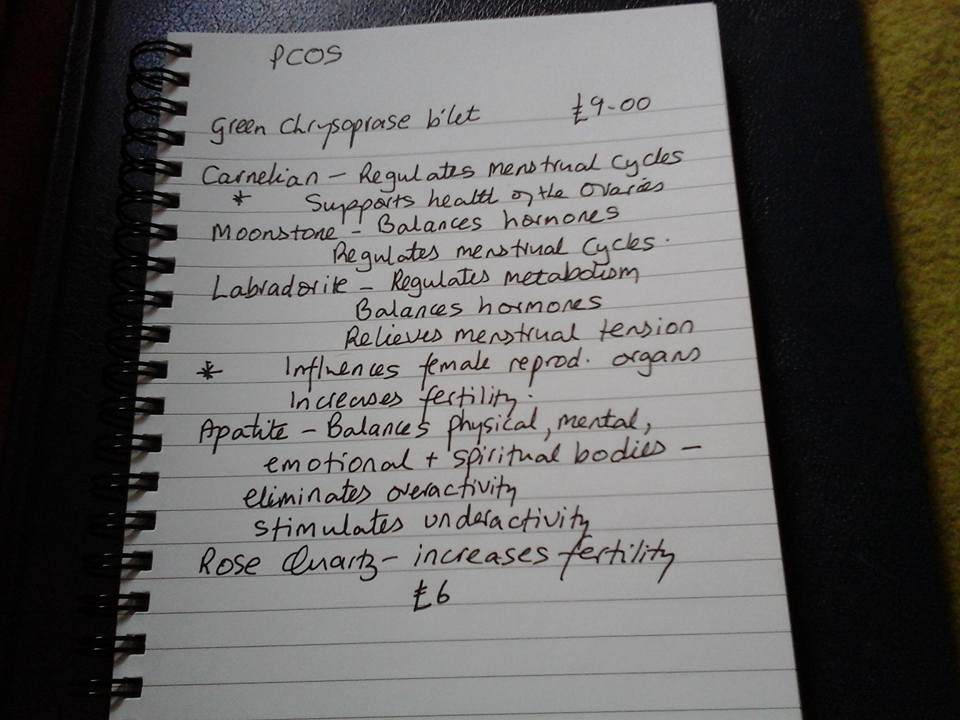 PCOS
Green Chrysoprase b'let £9-00
Carnelian - Regulates menstrual cycles
* Supports health of the Ovaries
Moonstone - Balances hormones
Regulates menstrual cycles.
Labradorite - Regulates metabolism
Balances hormones
Relieves menstrual tension
* Influences female reprod. organs
Increases fertility.
Apatite - Balances physical, mental,
emotional + spiritual bodies -
eliminates overactivity
stimulates underactivity
Rose Quartz - increases fertility
£6